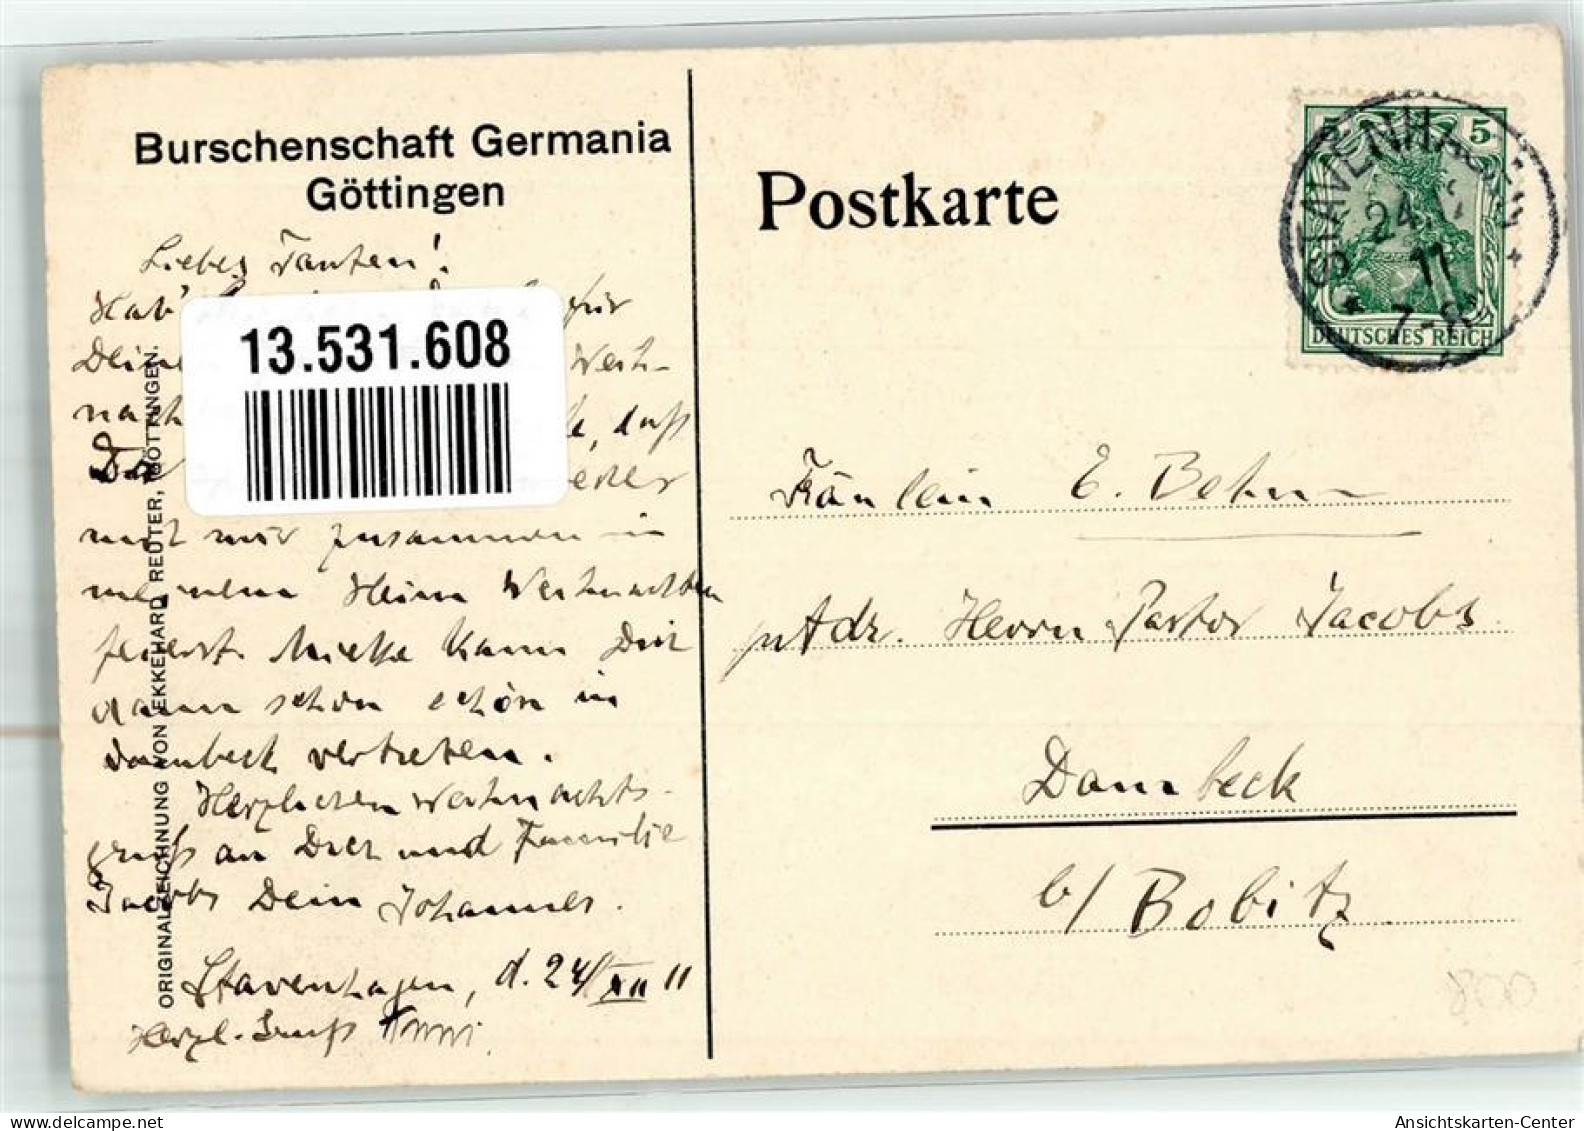 Burschenschaft Germania
Göttingen
Liebes Tanten!
Hab' für
Deine Weih-
nachts daß
Du
mit mir zusammen in
meinem Heim Weihnachten
feierst. Mieke kann Dich
dann schon schön in
Dambeck vertreten.
Herzlichen Weihnachts-
gruß an Dich und Familie
Jacobs Dein Johannes.
Stavenhagen, d. 24/XII 11
Herzl. Gruß
ORIGINALZEICHNUNG VON EKKEHARD REUTER, GÖTTINGEN.
13.531.608
Postkarte
STAVENHAGEN
24.
11
7-8
5 5
DEUTSCHES REICH
Fräulein E. Behm
p. Adr. Herrn Pastor Jacobs
Dambeck
b/ Bobitz
800
Ansichtskarten-Center